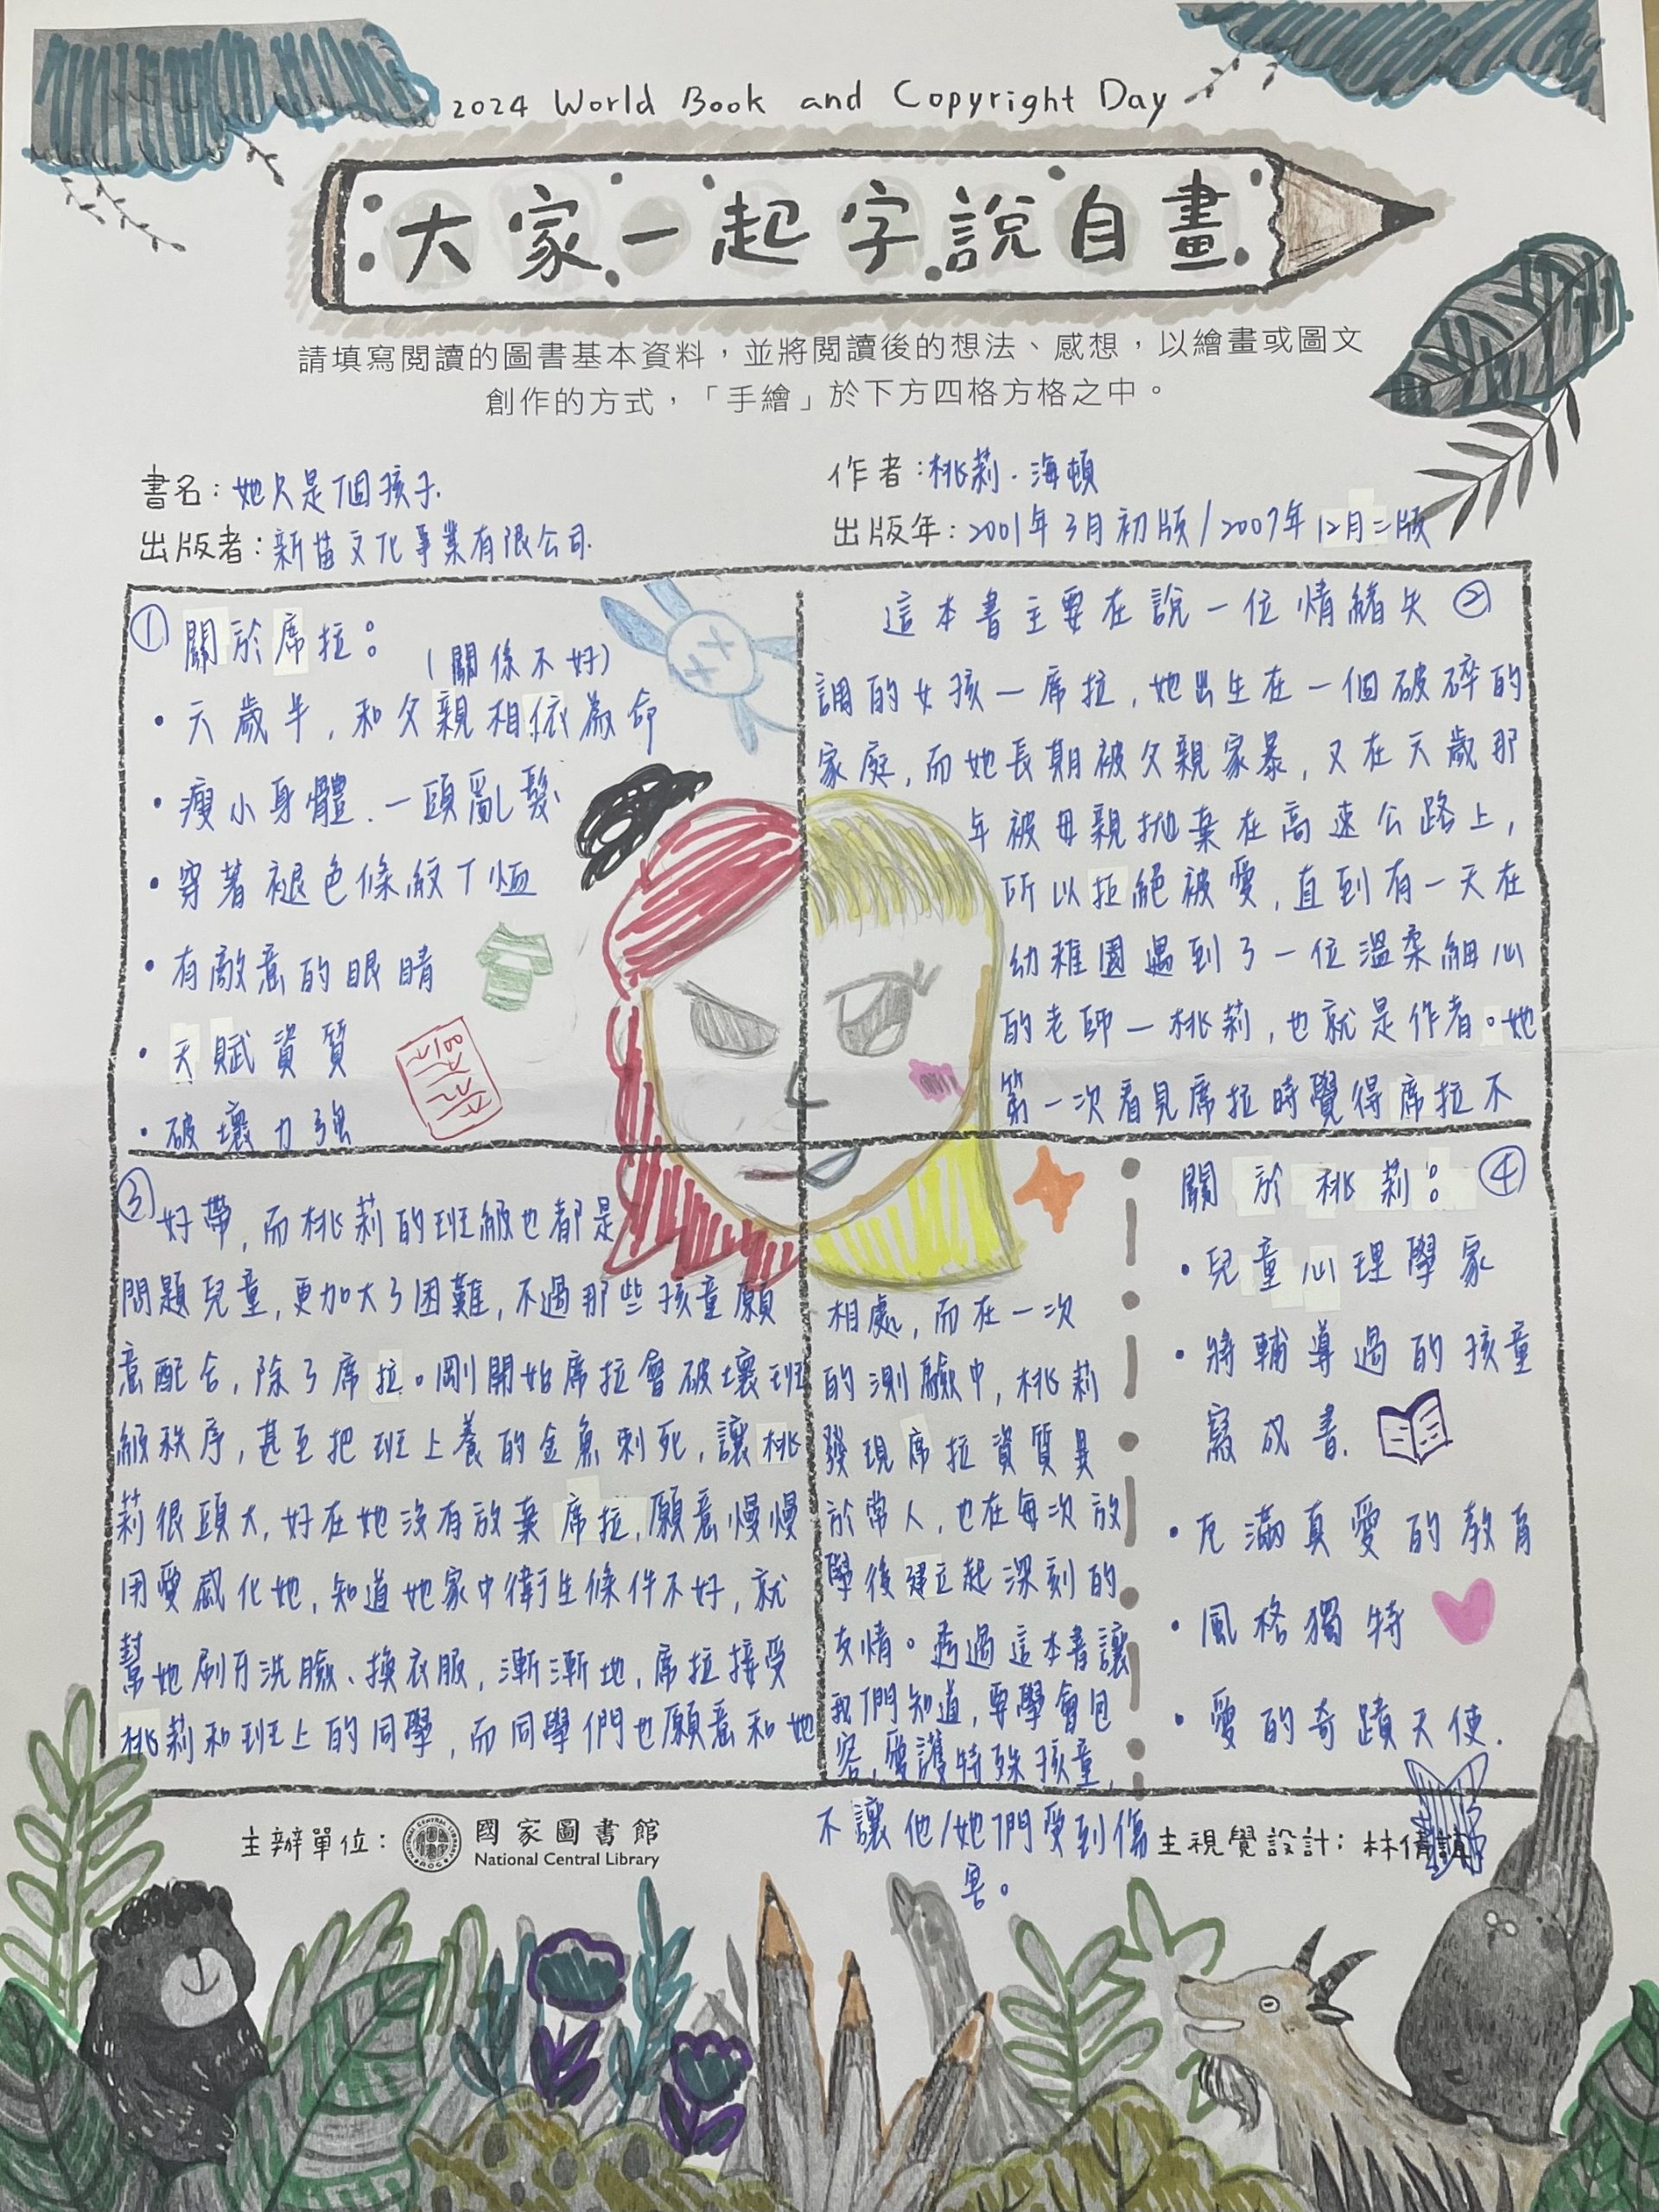 2024 World Book and Copyright Day
大家一起字說自畫
請填寫閱讀的圖書基本資料，並將閱讀後的想法、感想，以繪畫或圖文
創作的方式，「手繪」於下方四格方格之中。
書名：她只是個孩子.
作者：桃莉．海頓
出版者：新苗文化事業有限公司.
出版年：2001年3月初版/2007年12月二版
① 關於席拉：
(關係不好)
・六歲半，和父親相依為命
・瘦小身體．一頭亂髮
・穿著褪色條紋T恤
・有敵意的眼睛
・天賦資質
・破壞力強
這本書主要在說一位情緒失 ②
調的女孩—席拉，她出生在一個破碎的
家庭，而她長期被父親家暴，又在六歲那
年被母親拋棄在高速公路上，
所以拒絕被愛，直到有一天在
幼稚園遇到了一位溫柔細心
的老師—桃莉，也就是作者。她
第一次看見席拉時覺得席拉不
③ 好帶，而桃莉的班級也都是
問題兒童，更加大了困難，不過那些孩童願
意配合，除了席拉。剛開始席拉會破壞班
級秩序，甚至把班上養的金魚刺死，讓桃
莉很頭大，好在她沒有放棄席拉，願意慢慢
用愛感化她，知道她家中衛生條件不好，就
幫她刷牙洗臉、換衣服，漸漸地，席拉接受
桃莉和班上的同學，而同學們也願意和她
相處，而在一次
的測驗中，桃莉
發現席拉資質異
於常人，也在每次放
學後建立起深刻的
友情。透過這本書讓
我們知道，要學會包
容，愛護特殊孩童，
不讓他/她們受到傷
害。
關於桃莉：④
・兒童心理學家
・將輔導過的孩童
寫成書.
・充滿真愛的教育
・風格獨特
・愛的奇蹟天使.
主辦單位：國家圖書館
National Central Library
主視覺設計：林倩誼